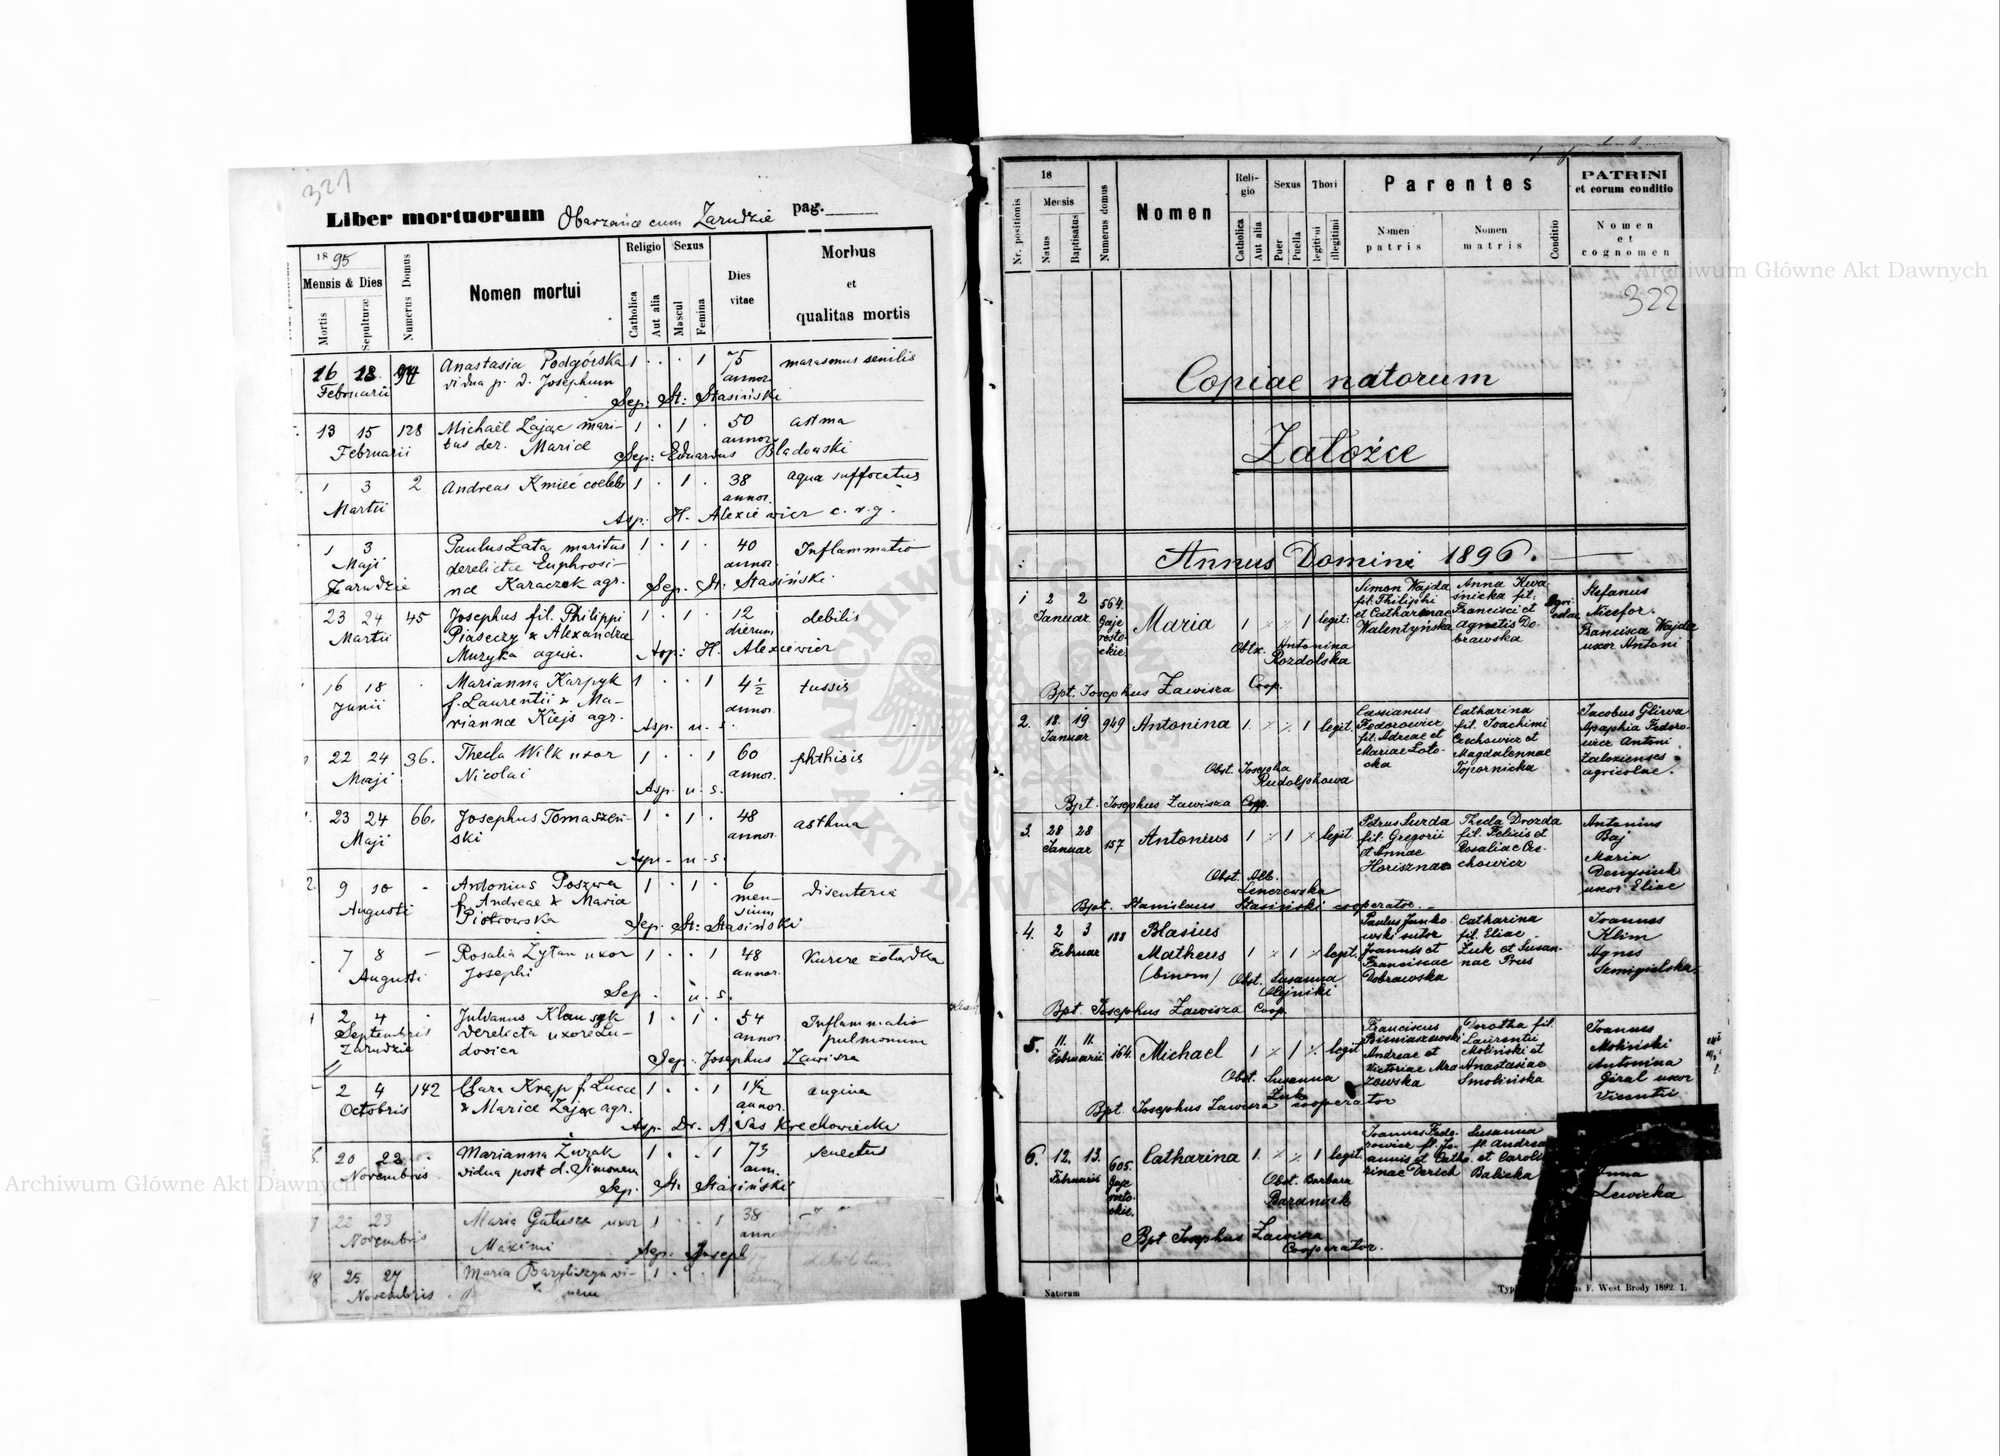 321
Liber mortuorum Obarzańce cum Zarudzie pag.
1895
Mensis & Dies
Mortis
Sepulturæ
Numerus Domus
Nomen mortui
Religio
Catholica
Aut alia
Sexus
Mascul
Femina
Dies
vitae
Morbus
et
qualitas mortis
16 18 94 Anastasia Podgórska 1 . . 1 75 marasmus senilis
Februarii vidua p. d. Josephum annor.
Sep: St: Stasiński
13 15 128 Michaël Zając mari- 1 . 1 . 50 astma
Februarii tus der. Mariae annor.
Sep: Eduardus Bladowski
1 3 2 Andreas Kmieć coelebs 1 . 1 . 38 aqua suffocatus
Martii annor.
Asp. H. Alexiewicz c. r. g.
1 3 Paulus Łata maritus 1 . 1 . 40 Inflammatio
Maji derelictae Euphrosi- annor.
Zarudzie nae Karaczek agr. Sep. St. Stasiński
23 24 45 Josephus fil. Philippi 1 . 1 . 12 debilis
Martii Piaseczy & Alexandrae dierum
Muzyka agric. Asp: H. Alexiewicz
16 18 . Marianna Karpyk 1 . . 1 4½ tussis
Junii f. Laurentii & Ma- annor.
riannae Kiejs agr. Asp. u. s.
22 24 36. Thecla Wilk uxor 1 . . 1 60 phthisis
Maji Nicolai annor.
Asp. u. s.
23 24 66. Josephus Tomaszeń- 1 . 1 . 48 asthma
Maji ski annor.
Asp. u. s.
9 10 - Antonius Poszwa 1 . 1 . 6 disenteria
Augusti f. Andreae & Maria men-
Piotrowska sium
Sep. St: Stasiński
7 8 - Rosalia Zytan uxor 1 . . 1 48 Kurcze żołądka
Augusti Josephi annor.
Sep. u. s.
2 4 . Julianus Klauszyk 1 . 1 . 54 Inflammatio
Septembris derelicta uxore Lu- annor. pulmonum
Zarudzie dovica Sep: Josephus Zawisza
2 4 142 Clara Krąp f. Lucae 1 . . 1 1½ angina
Octobris & Mariae Zając agr. annor.
Asp. Dr. A. Sas Krechowiecki
20 22 . Marianna Żurak 1 . . 1 73 senectus
Novembris vidua post d. Simonem ann.
Sep. St. Stasiński
22 23 Maria Gałusza uxor 1 . . 1 38
Novembris Maximi ann
Sep: Joseph
18 25 27 Maria 1 . . 1
Novembris
18
Mensis
Nr. positionis
Natus
Baptisatus
Numerus domus
Nomen
Reli-
gio
Catholica
Aut alia
Sexus
Puer
Puella
Thori
legitimi
illegitimi
Parentes
Nomen
patris
Nomen
matris
Conditio
PATRINI
et eorum conditio
Nomen
et
cognomen
322
Copiae natorum
Załoźce
Annus Domini 1896.
1 2 2 564. Maria 1 × × 1 legit:
Januar Gaje rosto- ckie
Simon Wajda
fil. Philiphi
et Catharinae
Walentyńska
Anna Kwa-
śnicka fil:
Francisci et
Agnetis Do-
brawska
Agri-
colae
Stefanus
Nicefor.
Francisca Wajda
uxor Antoni
Obtx. Antonina
Rozdolska
Bpt. Josephus Zawisza Coop.
2. 18. 19 949 Antonina 1. × × 1 legit.
Januar
Cassianus
Fedorowicz
fil. Adreae et
Mariae Zoto-
cka
Catharina
fil. Joachimi
Czechowicz et
Magdalennae
Topornicka
Jacobus Gliwa
Apaphia Fedoro-
wicz Antoni
Zalozienses
agricolae.
Obst. Josepha
Rudolphowa
Bpt. Josephus Zawisza Coop.
3. 28 28 157 Antonius 1 × 1 × legit.
Januar
Petrus Surda
fil. Gregorii
et Annae
Horisznae
Thecla Drozda
fil. Felicis et
Rosaliae Cze-
chowicz
Antonius
Baj
Maria
Denysiuk
uxor Eliae
Obst. Alb.
Lenczewska
Bpt. Stanislaus Stasiński cooperator.
4. 2 3 188 Blasius
Februar Matheus 1 × 1 × legit.
(binom)
Paulus Janko-
wski sutor
Joannis et
Franciscae
Dobrawska
Catharina
fil. Eliae
Zuk et Susan-
nae Preis
Joannes
Klim
Agnes
Semigielska
Obst. Susanna
Olejniki
Bpt. Josephus Zawisza Coop.
5. 11. 11. 164. Michael 1 × 1 × legit
Februarii
Franciscus
Bieniaszewski
Andreae et
Victoriae Mro
zowska
Dorotha fil.
Laurentii
Moliński et
Anastasiae
Smolińska
Joannes
Moliński
Antonina
Giral uxor
Vicentii
Obst. Susanna
Zuk
Bpt. Josephus Zawisza cooperator
6. 12. 13. 605. Catharina 1. × × 1 legit.
Februarii Gaje rosto- ckie.
Joannes Fedo-
rowicz fil. Jo-
annis et Catha-
rinae Derich
Susanna
fil. Andrea
et Caroli
Balicka
Anna
Lewicka
Obst. Barbara
Baraniuk
Bpt Josephus Zawisza
Cooperator.
Natorum
Typ F. West Brody 1892. 1.
Archiwum Główne Akt Dawnych
Archiwum Główne Akt Dawnych
ARCHIWUM GŁÓWNE AKT DAWNYCH